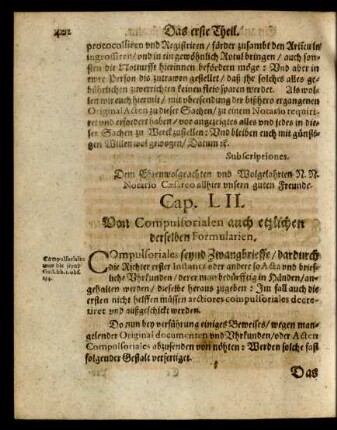 402 Das erste Theil.
protocolliren vnd Registriren / förder zusambt den Articuln
ingrossiren / vnd in ein gewöhnlich Rotul bringen / auch son-
sten die Notturfft hierinnen befördern möge: Vnd aber in
ewre Person die zutrawen gestellet / daß jhr solches alles ge-
bührlichen zuverrichten keinen fleis sparen werdet. Als wol-
len wir euch hiermit / mit vbersendung der bißhero ergangenen
Original Acten zu dieser Sachen / zu einem Notario requiri-
ret vnd erfordert haben / vor angezeigtes alles vnd jedes in die-
ser Sachen zu Werck zustellen: Vnd bleiben euch mit günsti-
gen Willen wol gewogen / Datum ꝛc.
Subscriptiones.
Dem Ehrenwolgeachten vnd Wolgelahrten N. N.
Notario Cæsareo allhier vnsern guten Freunde.
Cap. LII.
Von Compulsorialen auch etzlichen
derselben Formularien.
Compulsoriales
was die seynd
COmpulsoriales seynd Zwangbrieffe / dardurch
die Richter erster Instantz oder andere so Acta vnd brief-
liche Vhrkunden / derer man bedürfftig in Händen / an-
gehalten werden / dieselbe heraus zugeben: Im fall auch die
ersten nicht helffen müssen arctiores compulsoriales decre-
tiret vnd außgeschickt werden.
Do nun bey verführung einiges Beweises / wegen man-
gelender Original documenten vnd Vhrkunden / oder Acten
Compulsoriales abzusenden von nöhten: Werden solche fast
folgender Gestalt verfertiget.
Das